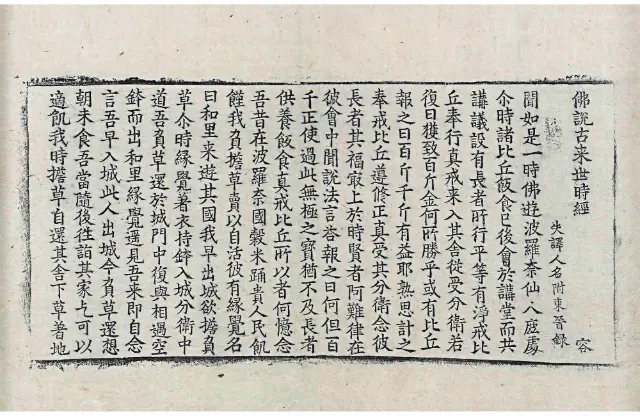 佛說古来世時經 容
失譯人名附東晉錄
聞如是一時佛遊波羅奈仙人鹿處
尒時諸比丘飯食已後會於講堂而共
講議設有長者所行平等有淨戒比
丘奉行真戒来入其舍從受分衛若
復日獲致百斤金何所勝乎或有比丘
報之曰百斤千斤有益耶熟思計之
奉戒比丘遵修正真受其分衛念彼
長者其福寂上於時賢者阿難律在
彼會中聞說法言荅報之曰何但百
千正使過此無極之寶猶不及長者
供養飯食真戒比丘所以者何憶念
吾昔在波羅奈國穀米踊貴人民飢
饉我負擔草賣以自活彼有緣覺名
曰和里来遊其國我早出城欲擔負
草尒時緣覺著衣持鉢入城分衛中
道吾負草還於城門中復與相遇空
鉢而出和里緣覺遥見吾来即自念
言吾早入城此人出城今負草還想
朝未食吾當隨後往詣其家乞可以
適飢我時擔草自還其舍下草著地